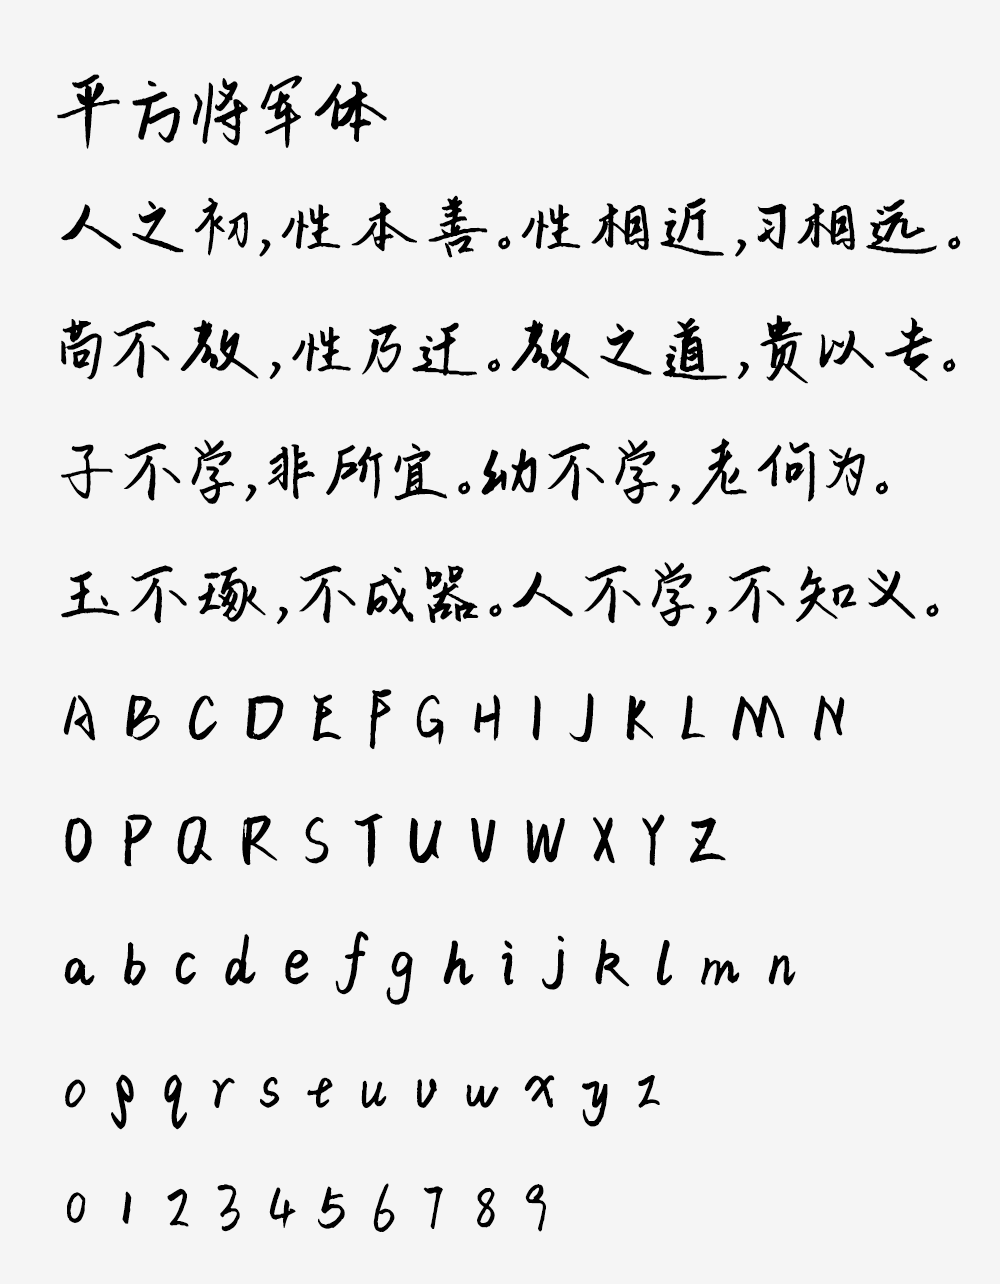 平方将军体
人之初,性本善。性相近,习相远。
苟不教,性乃迁。教之道,贵以专。
子不学,非所宜。幼不学,老何为。
玉不琢,不成器。人不学,不知义。
A B C D E F G H I J K L M N
O P Q R S T U V W X Y Z
a b c d e f g h i j k l m n
o p q r s t u v w x y z
0 1 2 3 4 5 6 7 8 9